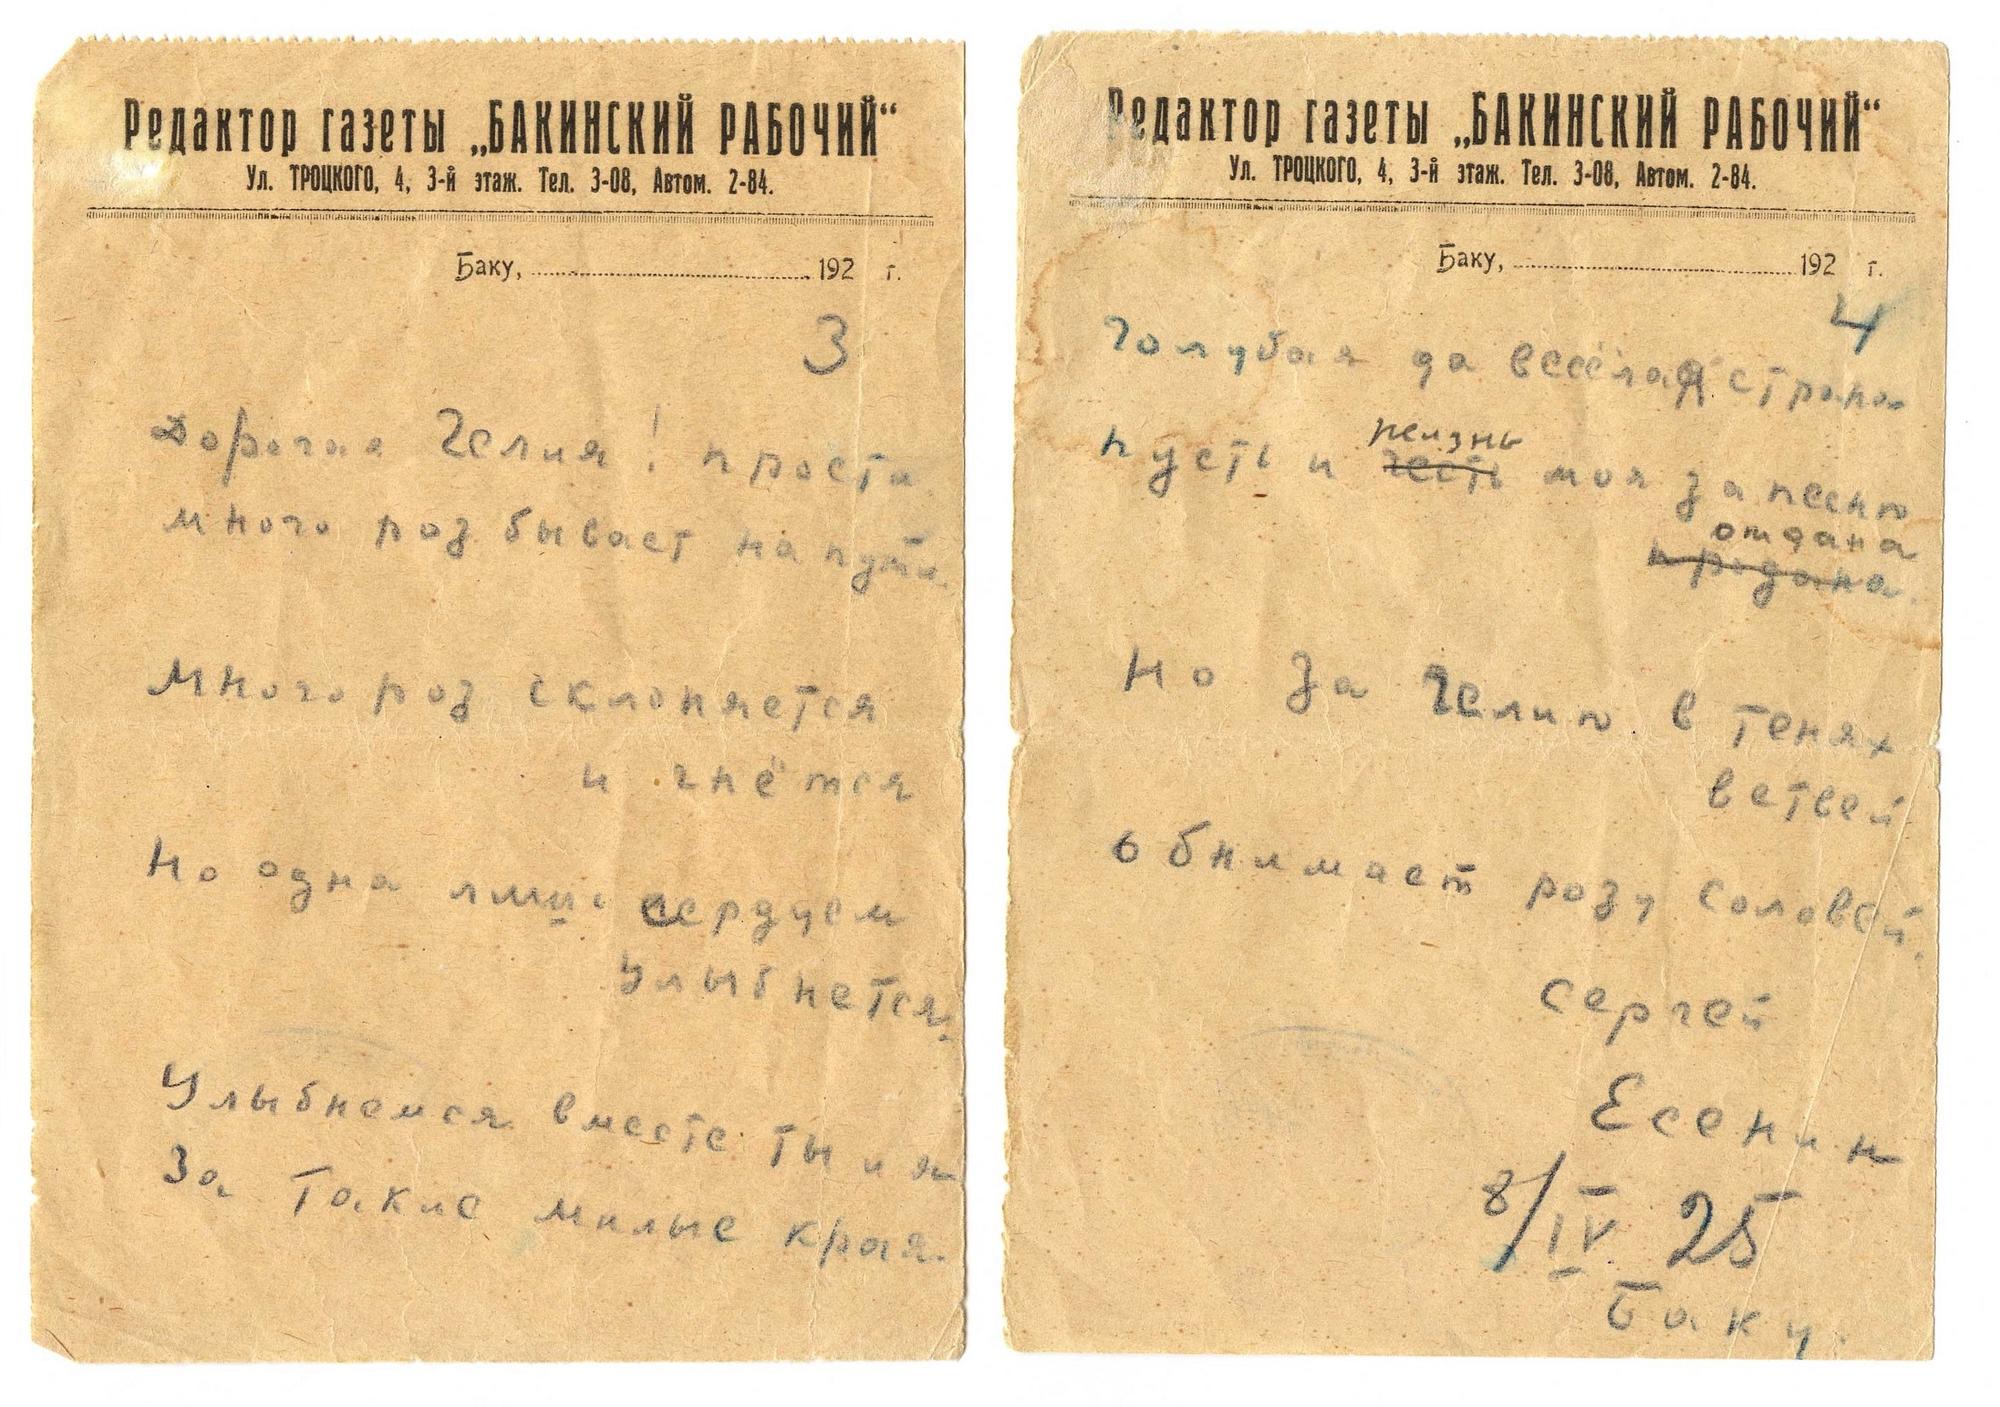 Редактор газеты „БАКИНСКИЙ РАБОЧИЙ“
Ул. ТРОЦКОГО, 4, 3-й этаж. Тел. 3-08, Автом. 2-84.
Баку, 192 г.
3
Дорогая Гелия! прости
много роз бывает на пути
Много роз склоняется
и гнётся
Но одна лишь сердцем
улыбнется.
Улыбнемся вместе ты и я
За такие милые края.
Редактор газеты „БАКИНСКИЙ РАБОЧИЙ“
Ул. ТРОЦКОГО, 4, 3-й этаж. Тел. 3-08, Автом. 2-84.
Баку, 192 г.
4
Голубая да весёлая страна
жизнь
Пусть и честь моя за песню
отдана
продана.
Но за Гелию в тенях
ветвей
обнимает розу соловей.
Сергей
Есенин
8/IV 25
Баку.